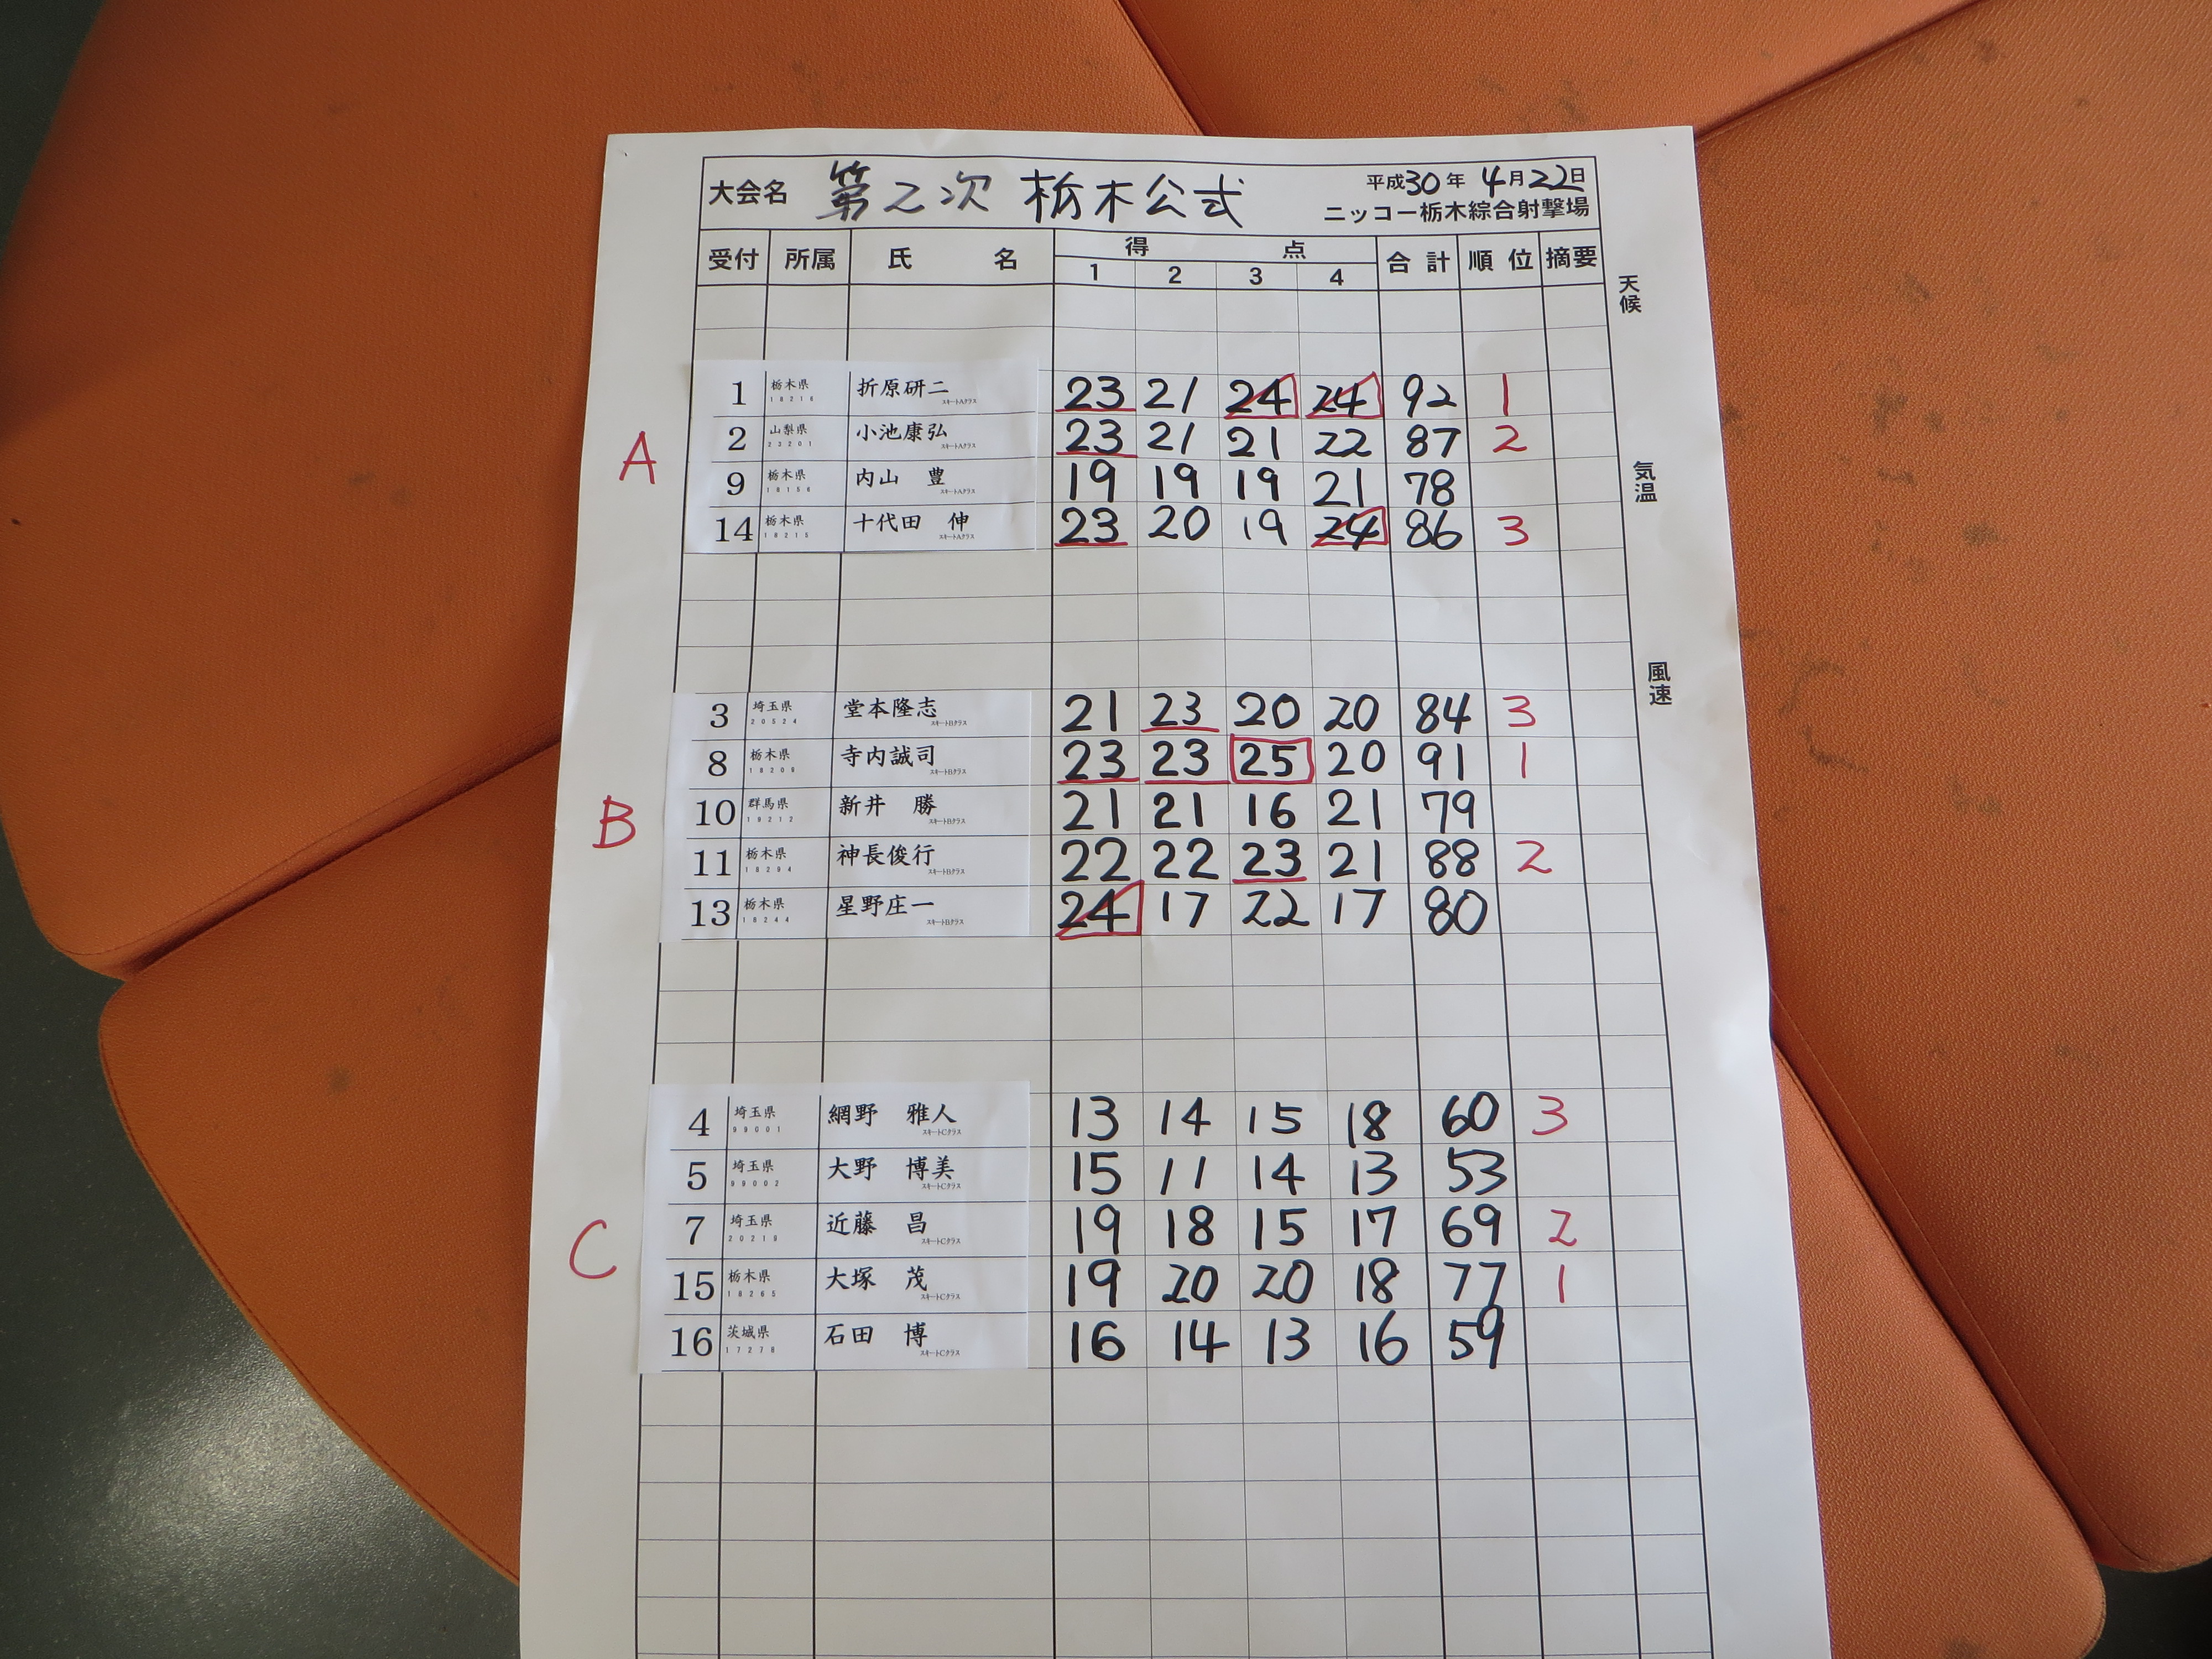 大会名 第2次 栃木公式 平成30年 4月22日
ニッコー栃木綜合射撃場
受付 所属 氏名 得点 合計 順位 摘要
1 2 3 4
天候
気温
風速
A
1 栃木県 18216 折原研二 スキートAクラス 23 21 24 24 92 1
2 山梨県 23201 小池康弘 スキートAクラス 23 21 21 22 87 2
9 栃木県 18156 内山 豊 スキートAクラス 19 19 19 21 78
14 栃木県 18215 十代田 伸 スキートAクラス 23 20 19 24 86 3
B
3 埼玉県 20524 堂本隆志 スキートBクラス 21 23 20 20 84 3
8 栃木県 18209 寺内誠司 スキートBクラス 23 23 25 20 91 1
10 群馬県 19212 新井 勝 スキートBクラス 21 21 16 21 79
11 栃木県 18294 神長俊行 スキートBクラス 22 22 23 21 88 2
13 栃木県 18244 星野庄一 スキートBクラス 24 17 22 17 80
C
4 埼玉県 99001 網野 雅人 スキートCクラス 13 14 15 18 60 3
5 埼玉県 99002 大野 博美 スキートCクラス 15 11 14 13 53
7 埼玉県 20219 近藤 昌 スキートCクラス 19 18 15 17 69 2
15 栃木県 18265 大塚 茂 スキートCクラス 19 20 20 18 77 1
16 茨城県 17278 石田 博 スキートCクラス 16 14 13 16 59